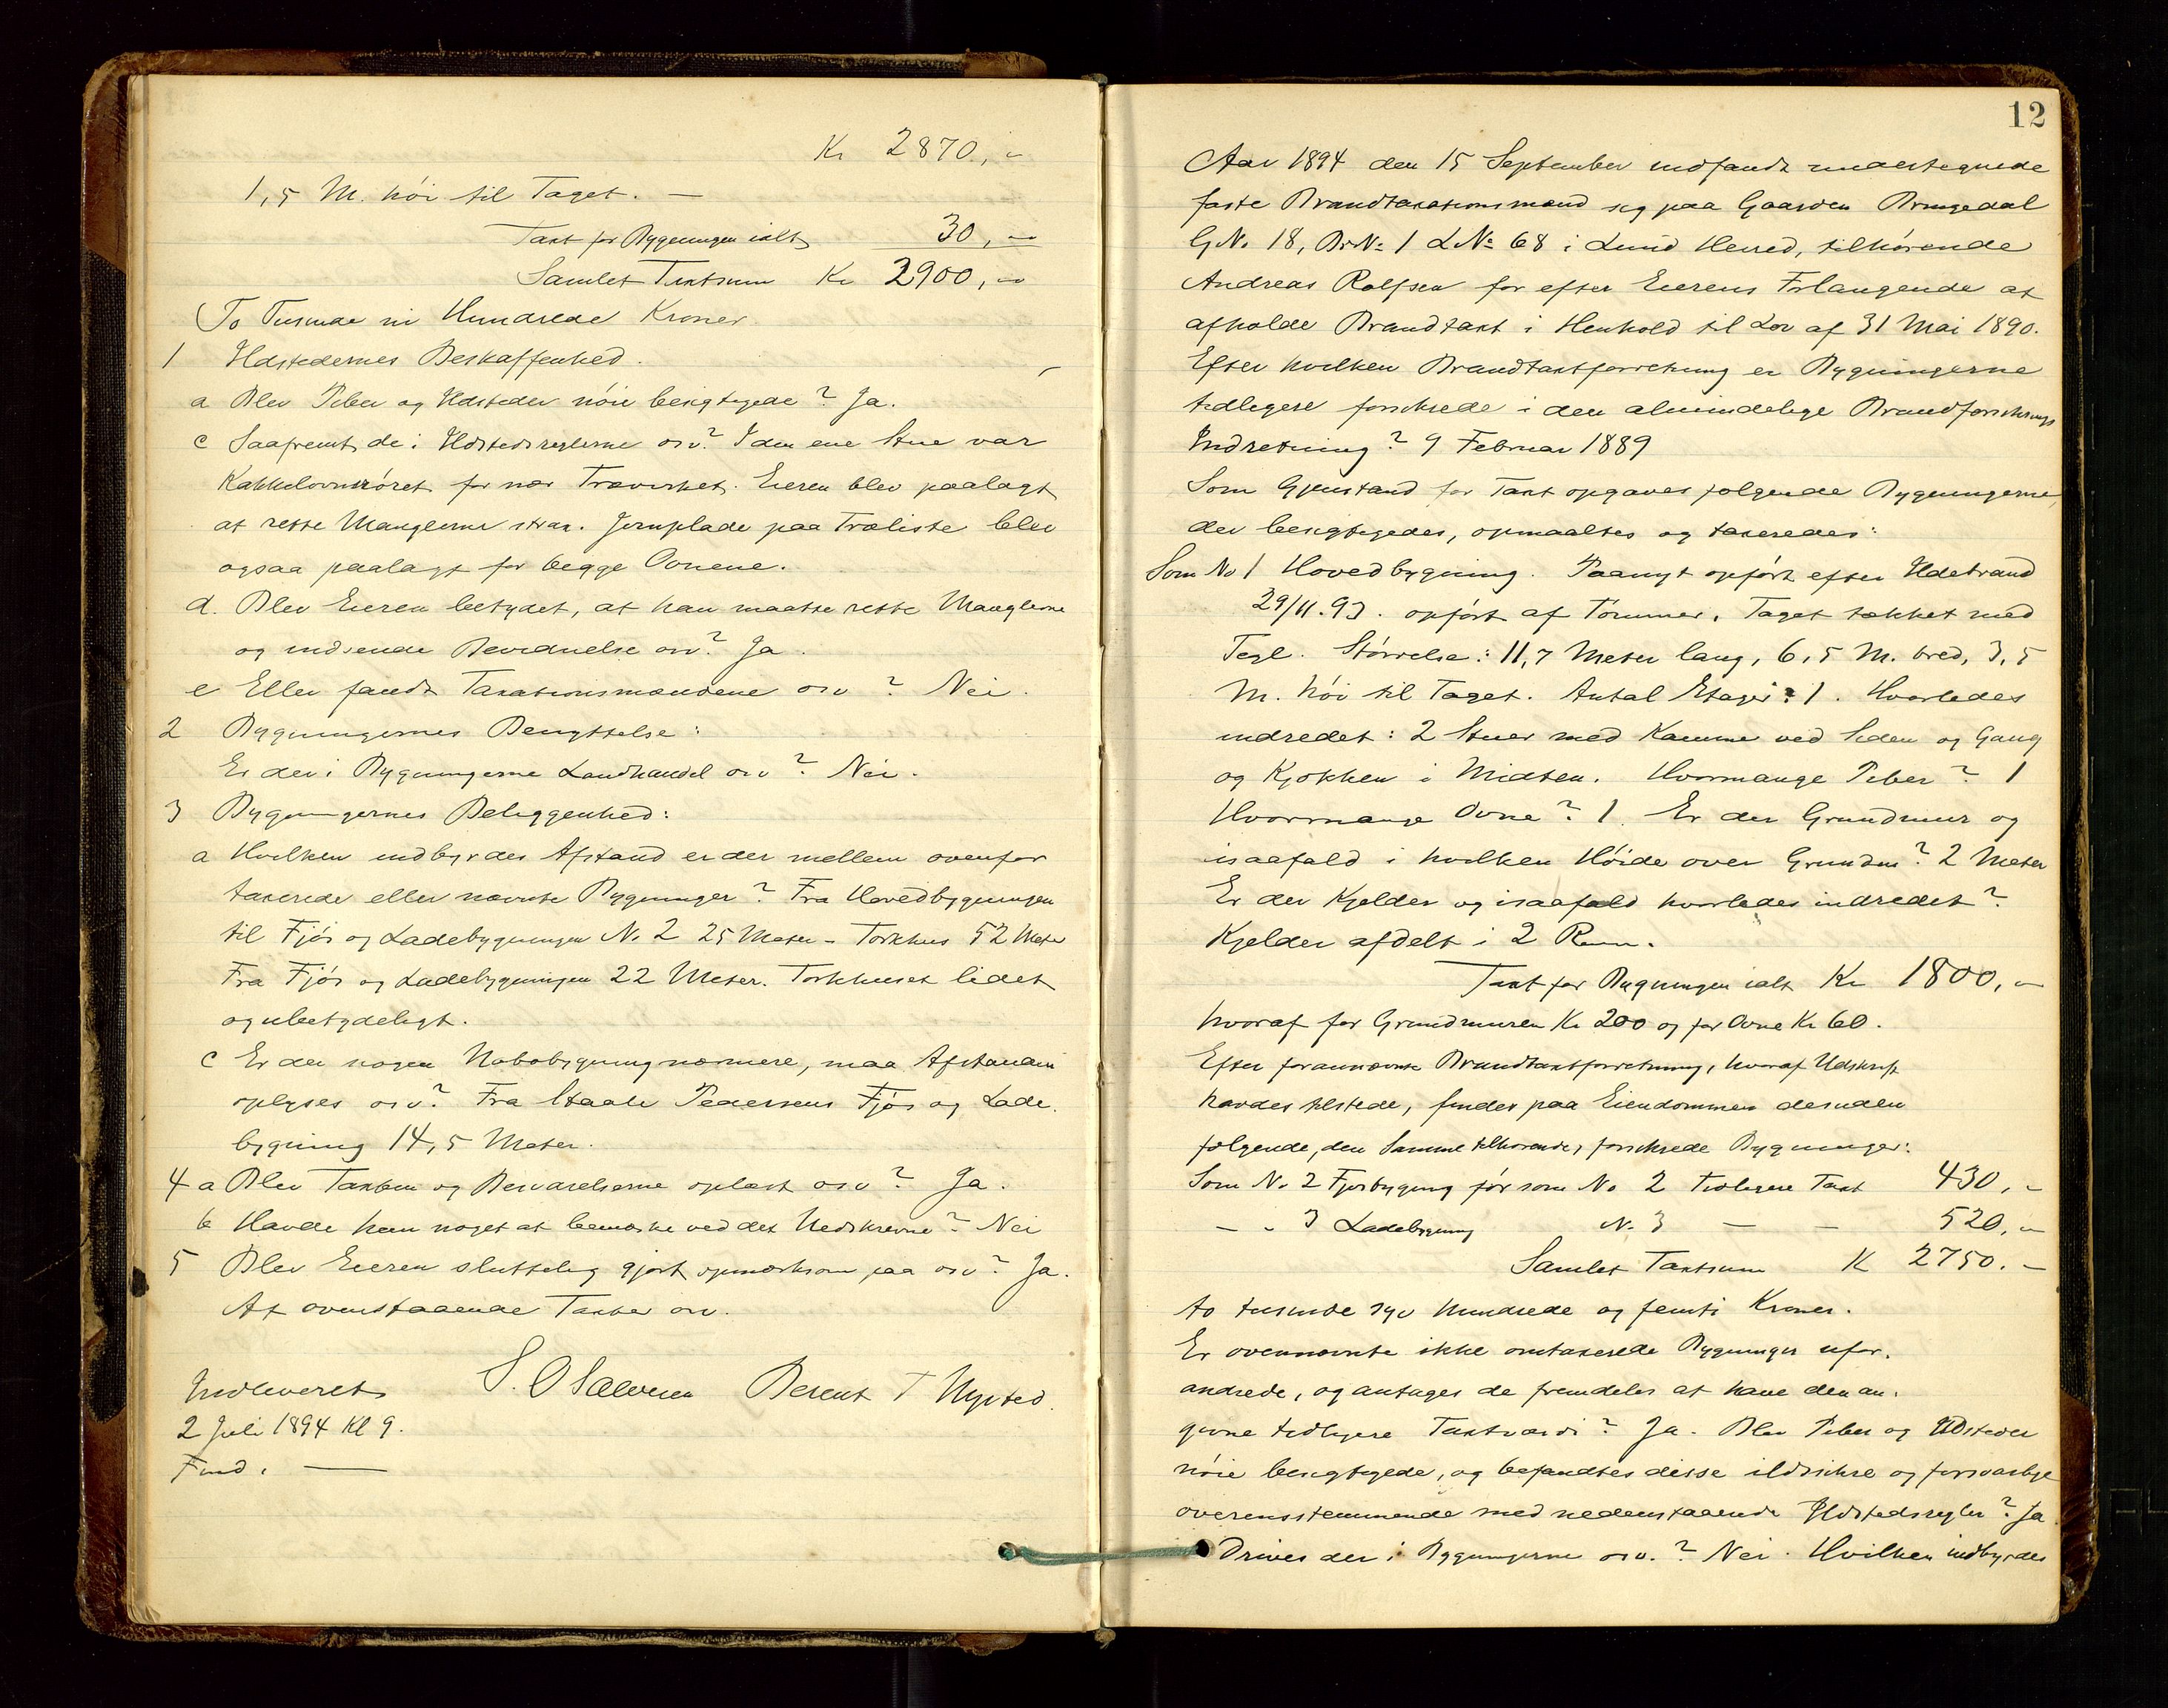 Kr 2870,-
1,5 M. høi til Taget. —
Taxt for Bygningen ialt 30,-
Samlet Taxtsum Kr 2900,-
To Tusinde ni Hundrede Kroner
1 Ildstedernes Beskaffenhed.
a Blev Piber og Ildsteder nøie besigtigede? Ja.
c Saafremt de i Ildstedsreglerne osv? I den ene Stue var
Kakkelovnsrøret for nær Trævirket. Eieren blev paalagt
at rette Manglerne strax. Jernplade paa Træliste blev
ogsaa paalagt for begge Ovnene.
d. Blev Eieren betydet, at han maatte rette Manglerne
og indsende Bevidnelse osv? Ja.
e Eller fandt Taxationsmændene osv? Nei.
2 Bygningernes Benyttelse:
Er der i Bygningerne Landhandel osv? Nei.
3 Bygningernes Beliggenhed:
a Hvilken indbyrdes Afstand er der mellem ovenfor
taxerede eller nævnte Bygninger? Fra Hovedbygningen
til Fjøs og Ladebygningen No 2 25 Meter - Torkhus 52 Meter
Fra Fjøs og Ladebygningen 22 Meter. Torkhuset lidet
og ubetydeligt.
c Er der nogen Nabobygning nærmere, maa Afstanden
oplyses osv? Fra Staale Pedersens Fjøs og Lade.
bygning 14,5 Meter.
4 a Blev Taxten og Besvarelserne oplæst osv? Ja.
b Havde han noget at bemærke ved det Nedskrevne? Nei
5 Blev Eieren sluttelig gjort opmærksom paa osv? Ja.
At ovenstaaende Taxter osv.
S. O Salvesen Berent T Nysted.
Indleveret
2 Juli 1894 Kl 9.
12
Aar 1894 den 15 September indfandt undertegnede
faste Brandtaxationsmænd sig paa Gaarden Bringedal
G.No. 18, Br.No 1 L.No 68 i Lund Herred, tilhørende
Andreas Rolfsen for efter Eierens Forlangende at
afholde Brandtaxt i Henhold til Lov af 31 Mai 1890.
Efter hvilken Brandtaxtforretning er Bygningerne
tidligere forsikrede i den almindelige Brandforsikrings
Indretning? 9 Februar 1889
Som Gjenstand for Taxt opgaves følgende Bygningerne,
der besigtigedes, opmaaltes og taxeredes:
Som No 1 Hovedbygning. Paanyt opført efter Ildebrand
29/11.93. opført af Tømmer. Taget tækket med
Tegl. Størrelse: 11,7 Meter lang, 6,5 M. bred, 3,5
M. høi til Taget. Antal Etager: 1. Hvorledes
indredet: 2 Stuer med Kamme ved Siden og Gang
og Kjøkken i Midten. Hvormange Piber? 1
Hvormange Ovne? 1. Er der Grundmur og
isaafald i hvilken Høide over Grunden? 2 Meter
Er der Kjelder og isaafald hvorledes indredet?
Kjelder afdelt i 2 Rum.
Taxt for Bygningen ialt Kr 1800,-
hvoraf for Grundmuren Kr 200 og for Ovne Kr 60.
Efter forannævnte Brandtaxtforretning, hvoraf Udskrift
havdes tilstede, findes paa Eiendommen desuden
følgende, den Samme tilhørende, forsikrede Bygninger:
Som No 2 Fjøsbygning før som No 2 tidligere Taxt 430,-
— - 3 Ladebygning No 3 — — 520,-
Samlet Taxtsum K 2750.-
to tusinde syv hundrede og femti Kroner.
Er ovennævnte ikke omtaxerede Bygninger ufor.
andrede, og antages de fremdeles at have den an.
givne tidligere Taxtværdi? Ja. Blev Piber og Ildsteder
nøie besigtigede, og befandtes disse ildsikre og forsvarlige
overensstemmende med nedenstaaende Ildstedsregler? Ja
Drives der i Bygningerne osv.? Nei. Hvilken indbyrdes